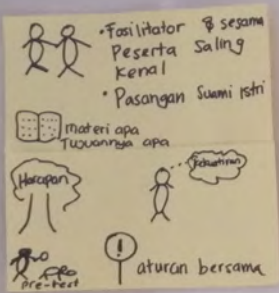 • Fasilitator & sesama
Peserta Saling
Kenal
• Pasangan Suami istri
materi apa
Tujuannya apa
Harapan
Kekuatiran
pre-test
! aturan bersama